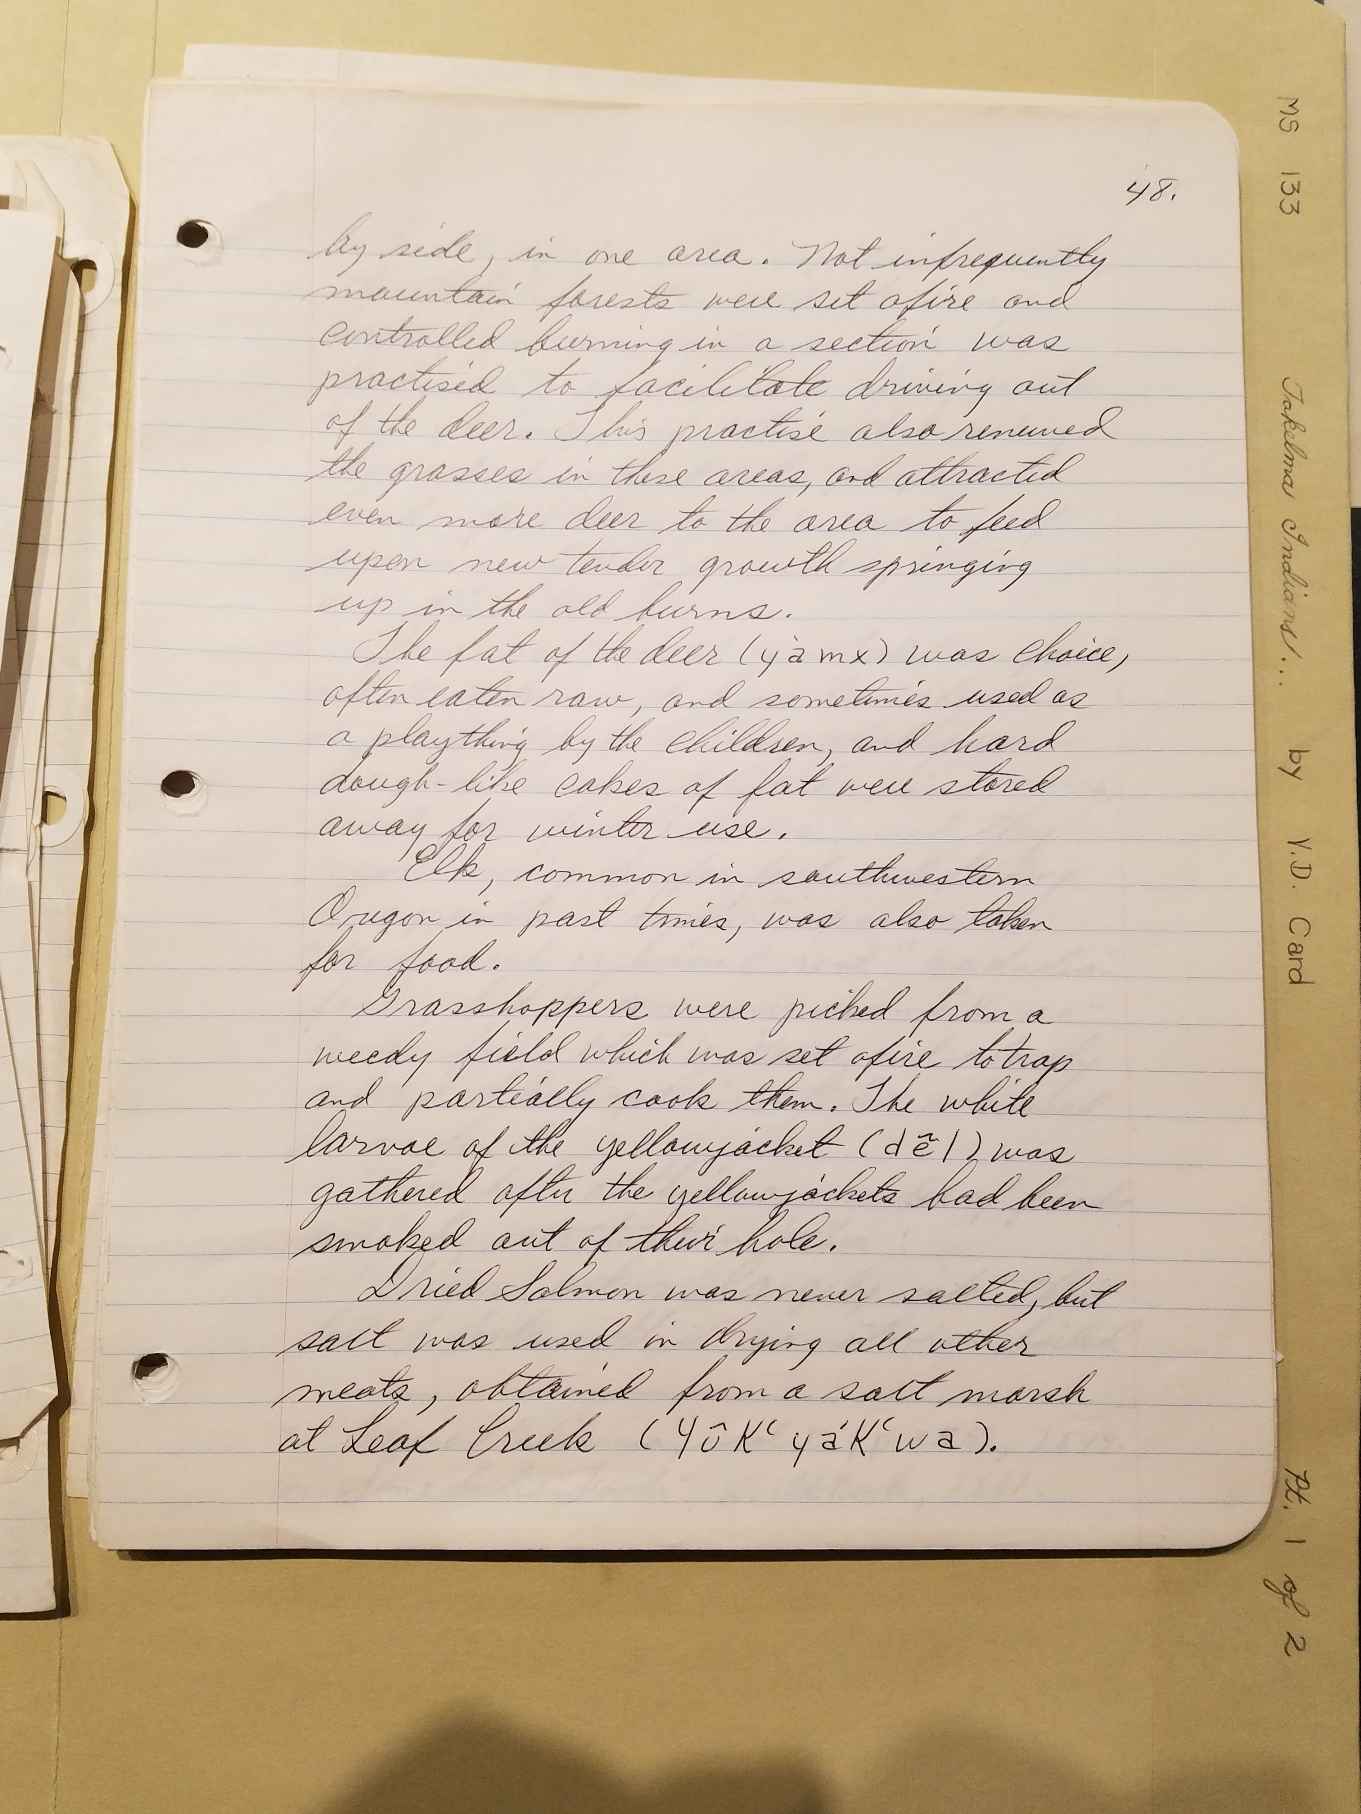 48.
by side, in one area. Not infrequently
mountain forests were set afire and
controlled burning in a section was
practised to facilitate driving out
of the deer. This practise also renewed
the grasses in these areas, and attracted
even more deer to the area to feed
upon new tender growth springing
up in the old burns.
The fat of the deer (yàmx) was choice,
often eaten raw, and sometimes used as
a plaything by the children, and hard
dough-like cakes of fat were stored
away for winter use.
Elk, common in southwestern
Oregon in past times, was also taken
for food.
Grasshoppers were picked from a
weedy field which was set afire to trap
and partially cook them. The white
larvae of the yellowjacket (dẽl) was
gathered after the yellowjackets had been
smoked out of their hole.
Dried Salmon was never salted, but
salt was used in drying all other
meats, obtained from a salt marsh
at Leaf Creek (YūKʻyáKʻwa).
MS 133 Takelma Indians... by Y.D. Card Pt. 1 of 2